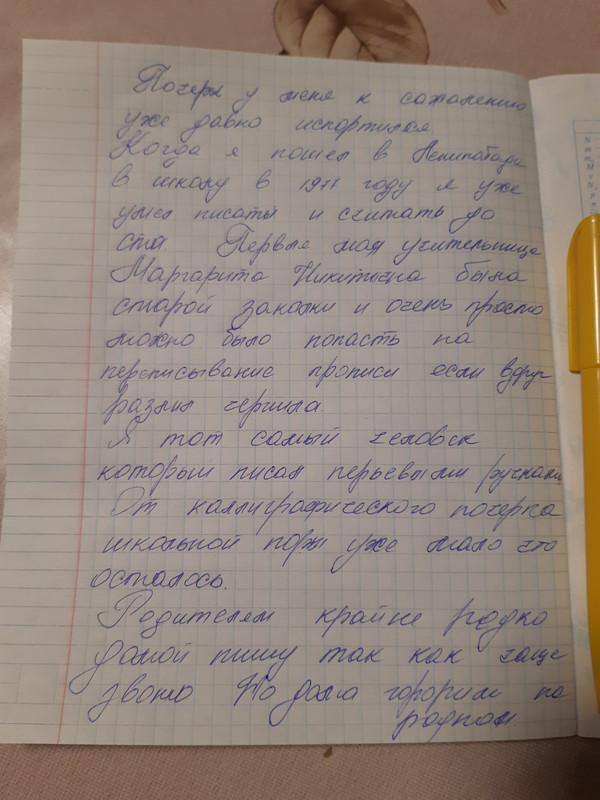 Почерк у меня к сожалению
уже давно испортился
Когда я пошел в Ленинабаде
в школу в 1977 году я уже
умел писать и считать до
ста Первая моя учительница
Маргарита Никитична была
старой закалки и очень просто
можно было попасть на
переписывание прописи если вдруг
разлил чернила.
Я тот самый человек
который писал перьевыми ручками
От каллиграфического почерка
школьной поры уже мало что
осталось.
Родителям крайне редко
домой пишу так как чаще
звоню Но дома говорим на
родном.